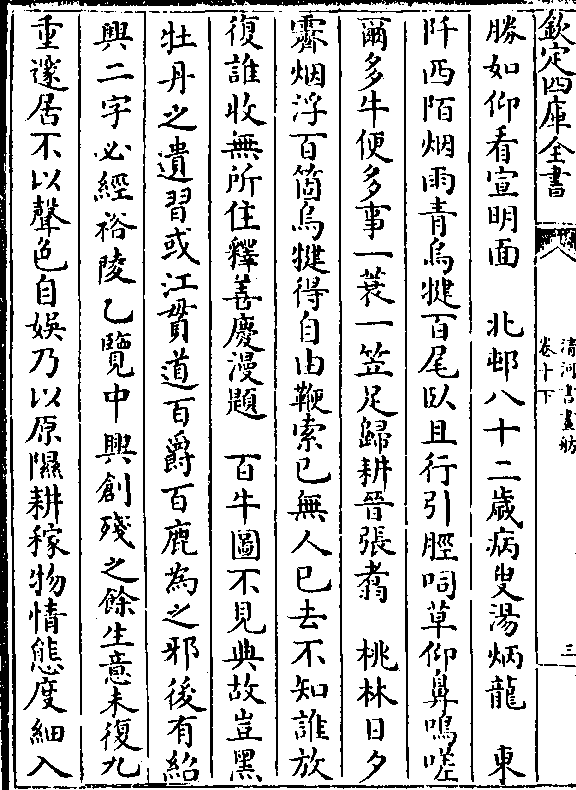 欽定四庫全書
清河書畫舫
卷十下
三
勝如仰看宣明面　北邨八十二歲病叟湯炳龍　東
阡西陌烟雨青烏犍百尾臥且行引脛呞草仰鼻鳴嗟
爾多牛便多事一蓑一笠足歸耕晉張翥　桃林日夕
霽烟浮百箇烏犍得自由鞭索已無人已去不知誰放
復誰收無所住釋善慶漫題　百牛圖不見典故豈黑
牡丹之遺習或江貫道百爵百鹿為之邪後有紹
興二字必經裕陵乙覽中興創殘之餘生意未復九
重邃居不以聲色自娛乃以原隰耕稼物情態度細入